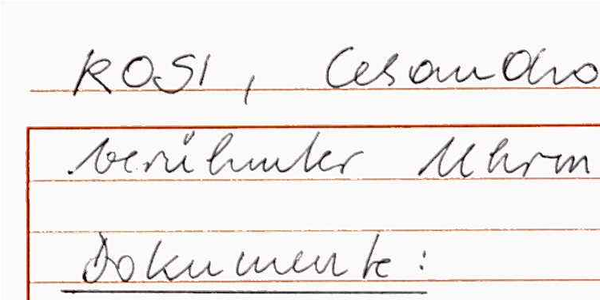 ROSI, Cesandro
berühmter Uhrm
Dokumente: